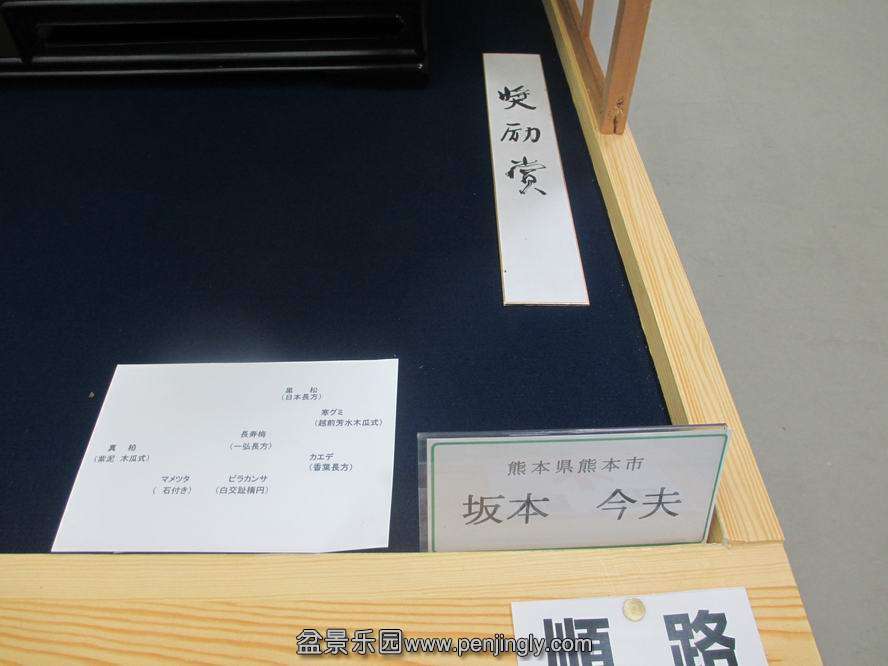 奨励賞
黒 松
(日本長方)
寒グミ
(越前芳水木瓜式)
長寿梅
(一弘長方)
真 柏
(紫泥 木瓜式)
カエデ
(香葉長方)
マメツタ
( 石付き)
ピラカンサ
(白交趾楕円)
熊本県熊本市
坂本 今夫
順路
盆景乐园www.penjingly.com